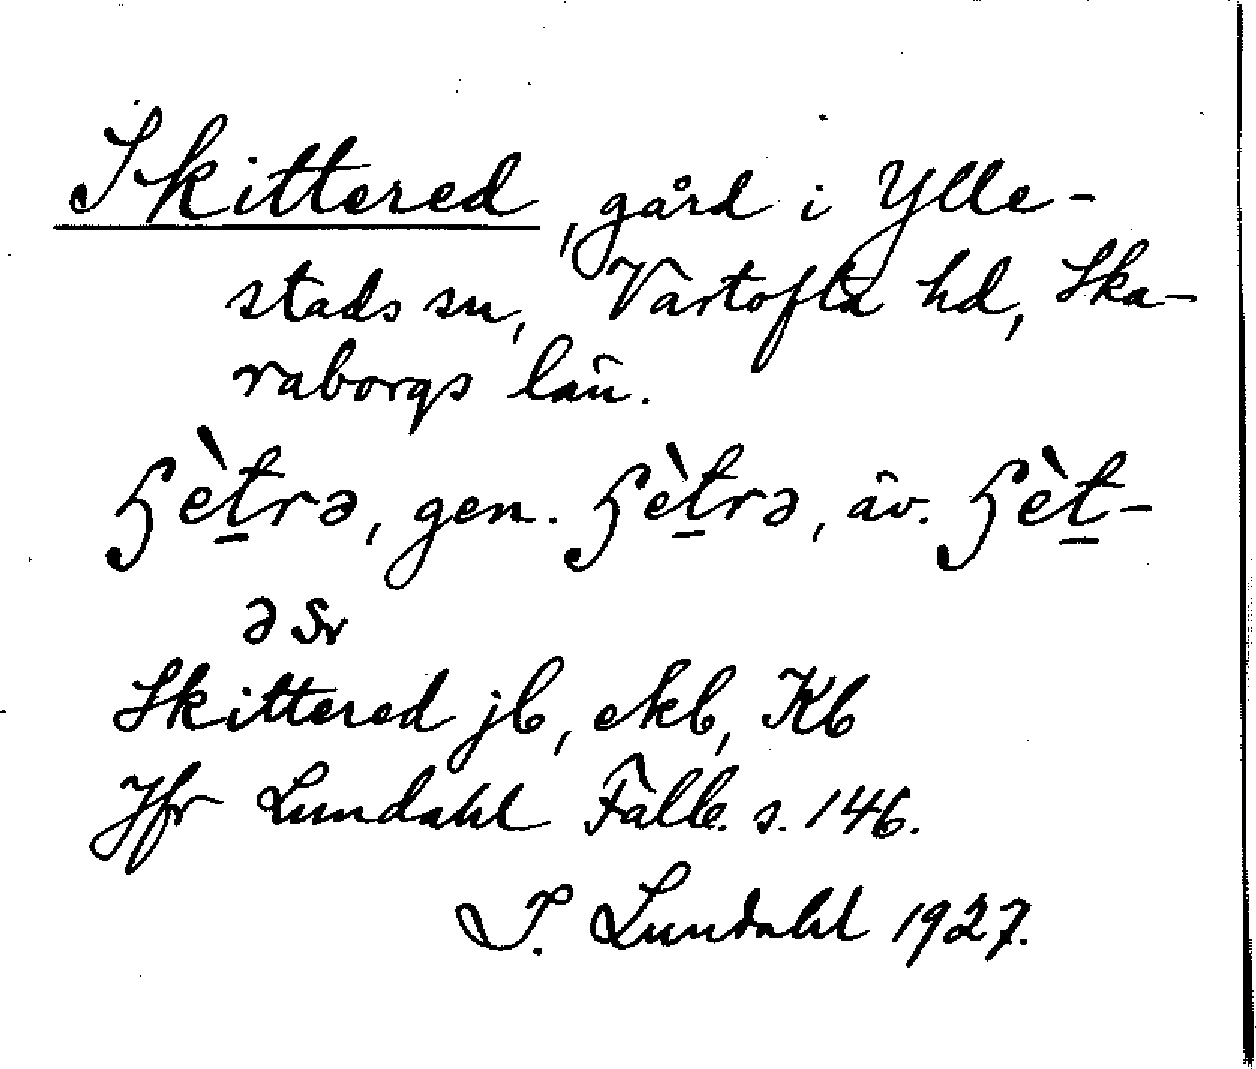 Skittered, gård i Ylle-
stads sn, Vartofta hd, Ska-
raborgs län.
ꜧètrə, gen. ꜧètrə, äv. ꜧèt-
ə
Skittered jb, ekb, Kb
Jfr Lundahl Falb. s. 146.
I. Lundahl 1927.